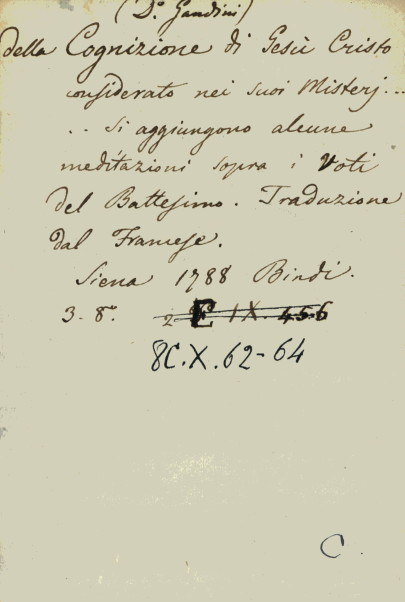 (Do. Gandini)
della Cognizione di Gesù Cristo
considerato nei suoi Misterj...
.. si aggiungono alcune
meditazioni sopra i Voti
del Battesimo. Traduzione
dal Francese.
Siena 1788 Bindi.
3. 8o. 2 E IX. 456
8C.X.62-64
C.